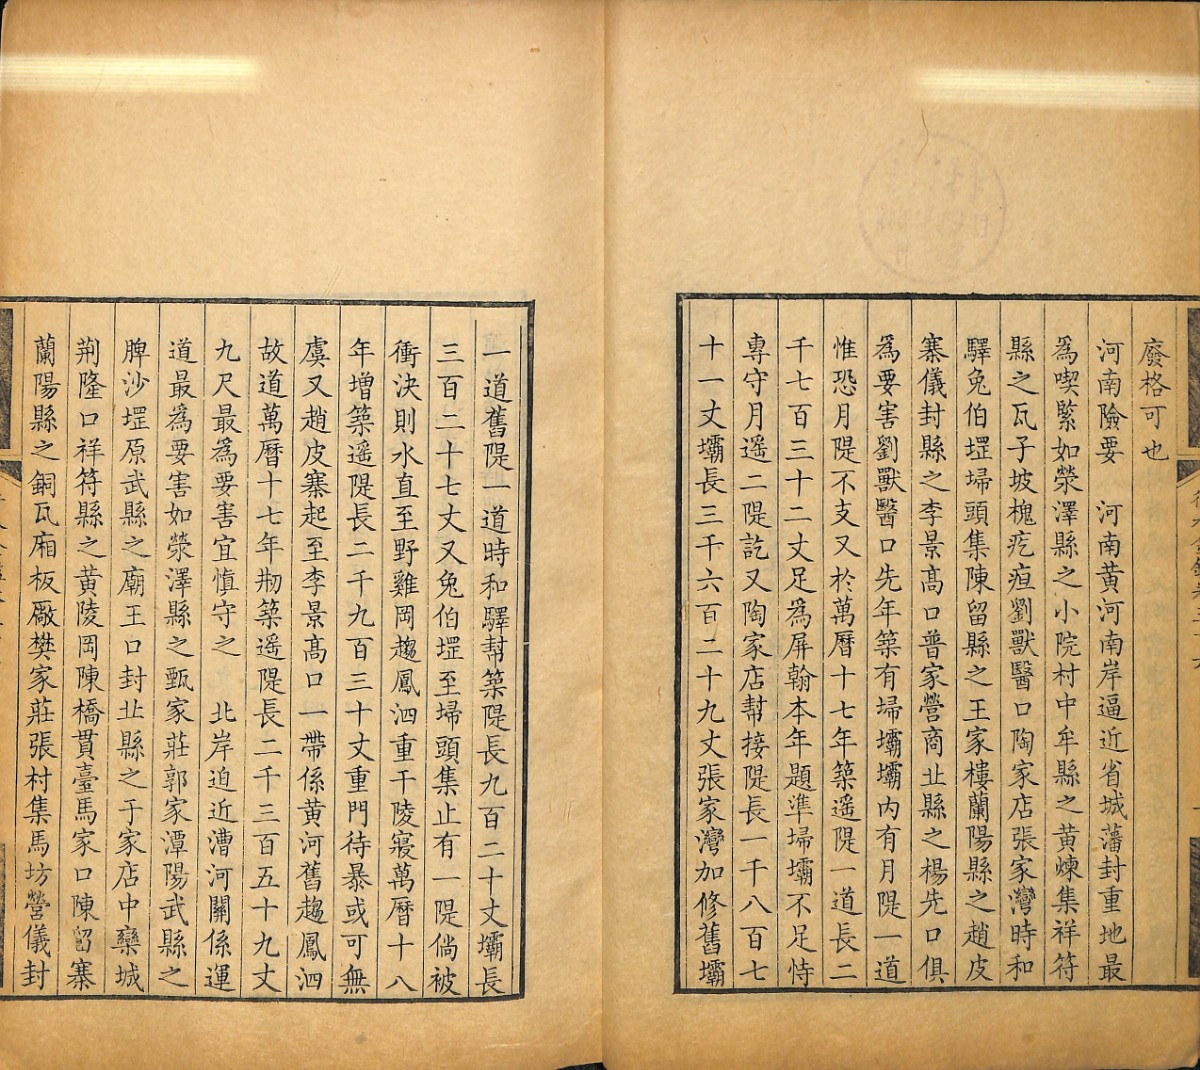 廢格可也
河南險要　河南黃河南岸逼近省城藩封重地最
為喫緊如滎澤縣之小院村中牟縣之黃煉集祥符
縣之瓦子坡槐疙疸劉獸醫口陶家店張家灣時和
驛兔伯堽埽頭集陳留縣之王家樓蘭陽縣之趙皮
寨儀封縣之李景高口普家營商丘縣之楊先口俱
為要害劉獸醫口先年築有埽壩壩內有月隄一道
惟恐月隄不支又於萬曆十七年築遥隄一道長二
千七百三十二丈足為屏翰本年題準埽壩不足恃
專守月遥二隄訖又陶家店幫接隄長一千八百七
十一丈壩長三千六百二十九丈張家灣加修舊壩
一道舊隄一道時和驛幫築隄長九百二十丈壩長
三百二十七丈又兔伯堽至埽頭集止有一隄倘被
衝決則水直至野雞岡趨鳳泗重干陵寢萬曆十八
年增築遥隄長二千九百三十丈重門待暴或可無
虞又趙皮寨起至李景高口一帶係黃河舊趨鳳泗
故道萬曆十七年剏築遥隄長二千三百五十九丈
九尺最為要害宜慎守之　北岸迫近漕河關係運
道最為要害如滎澤縣之甄家莊郭家潭陽武縣之
脾沙堽原武縣之廟王口封丘縣之于家店中欒城
荆隆口祥符縣之黃陵岡陳橋貫臺馬家口陳留寨
蘭陽縣之銅瓦廂板厰樊家莊張村集馬坊營儀封